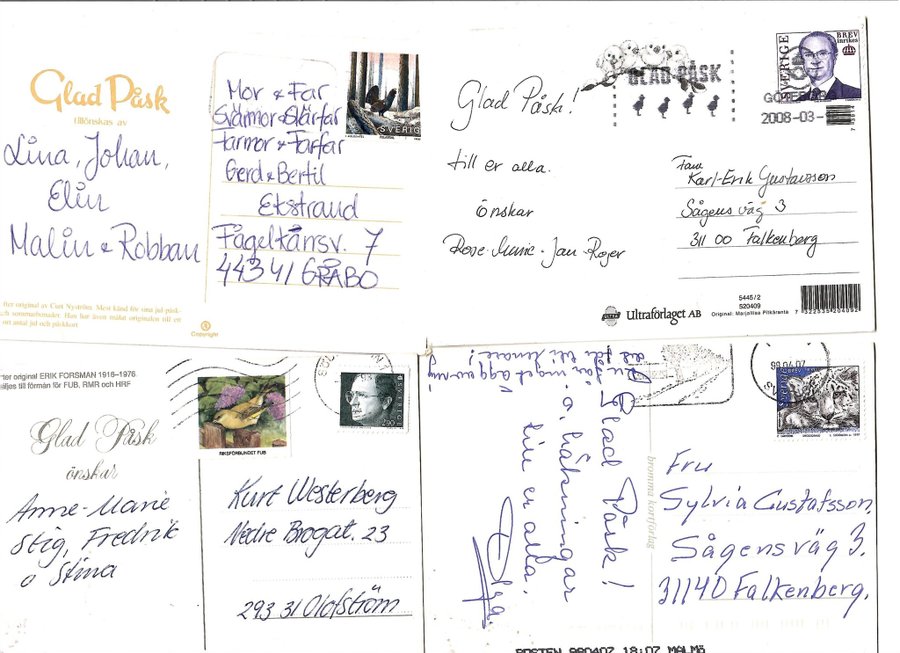 Glad Påsk
tillönskas av
Lina, Johan,
Elin
Malin & Robban
Mor & Far
Svärmor & Svärfar
Farmor & Farfar
Gerd & Bertil
Ekstrand
Fågelkärrsv. 7
443 41 GRÅBO
SVERIGE
fter original av Curt Nyström. Mest känd för sina jul-påsk-
och sommarbonader. Han har även målat originalen till ett
ort antal jul och påskkort.
Copyright
Glad Påsk!
till er alla.
önskar
Rose-Marie - Jan - Roger
GLAD PÅSK
SVERIGE
BREV
inrikes
2008-03-
Fam
Karl-Erik Gustavsson
Sågens väg 3
311 00 Falkenberg
Ultraförlaget AB
5445/2
520409
Original: Marjaliisa Pitkäranta
7 322535 204092
ter original ERIK FORSMAN 1916-1976.
äljes till förmån för FUB, RMR och HRF
Glad Påsk
önskar
Anne-Marie
Stig, Fredrik
o Stina
RIKSFÖRBUNDET FUB
SVERIGE
Kurt Westerberg
Nedre Brogat. 23
293 31 Olofström
Glad Påsk!
önskningar
till er alla.
bromma kortförlag
98 04 07
Fru
Sylvia Gustafsson.
Sågensväg 3.
31140 Falkenberg.
POSTEN 980407 18:07 MALMÖ